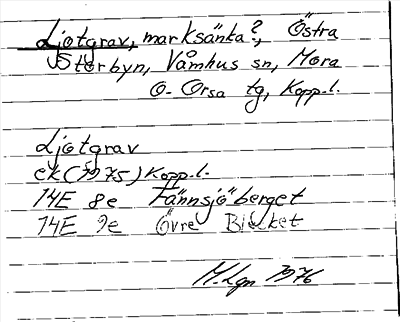 Ljotgrav, marksänka?, Östra
Storbyn, Våmhus sn, Mora
o. Orsa tg, Kopp.l.
Ljotgrav
ek (1975) Kopp.l.
14E 8e Fännsjöberget
14E 9e Övre Blecket
M. Lgn 1976